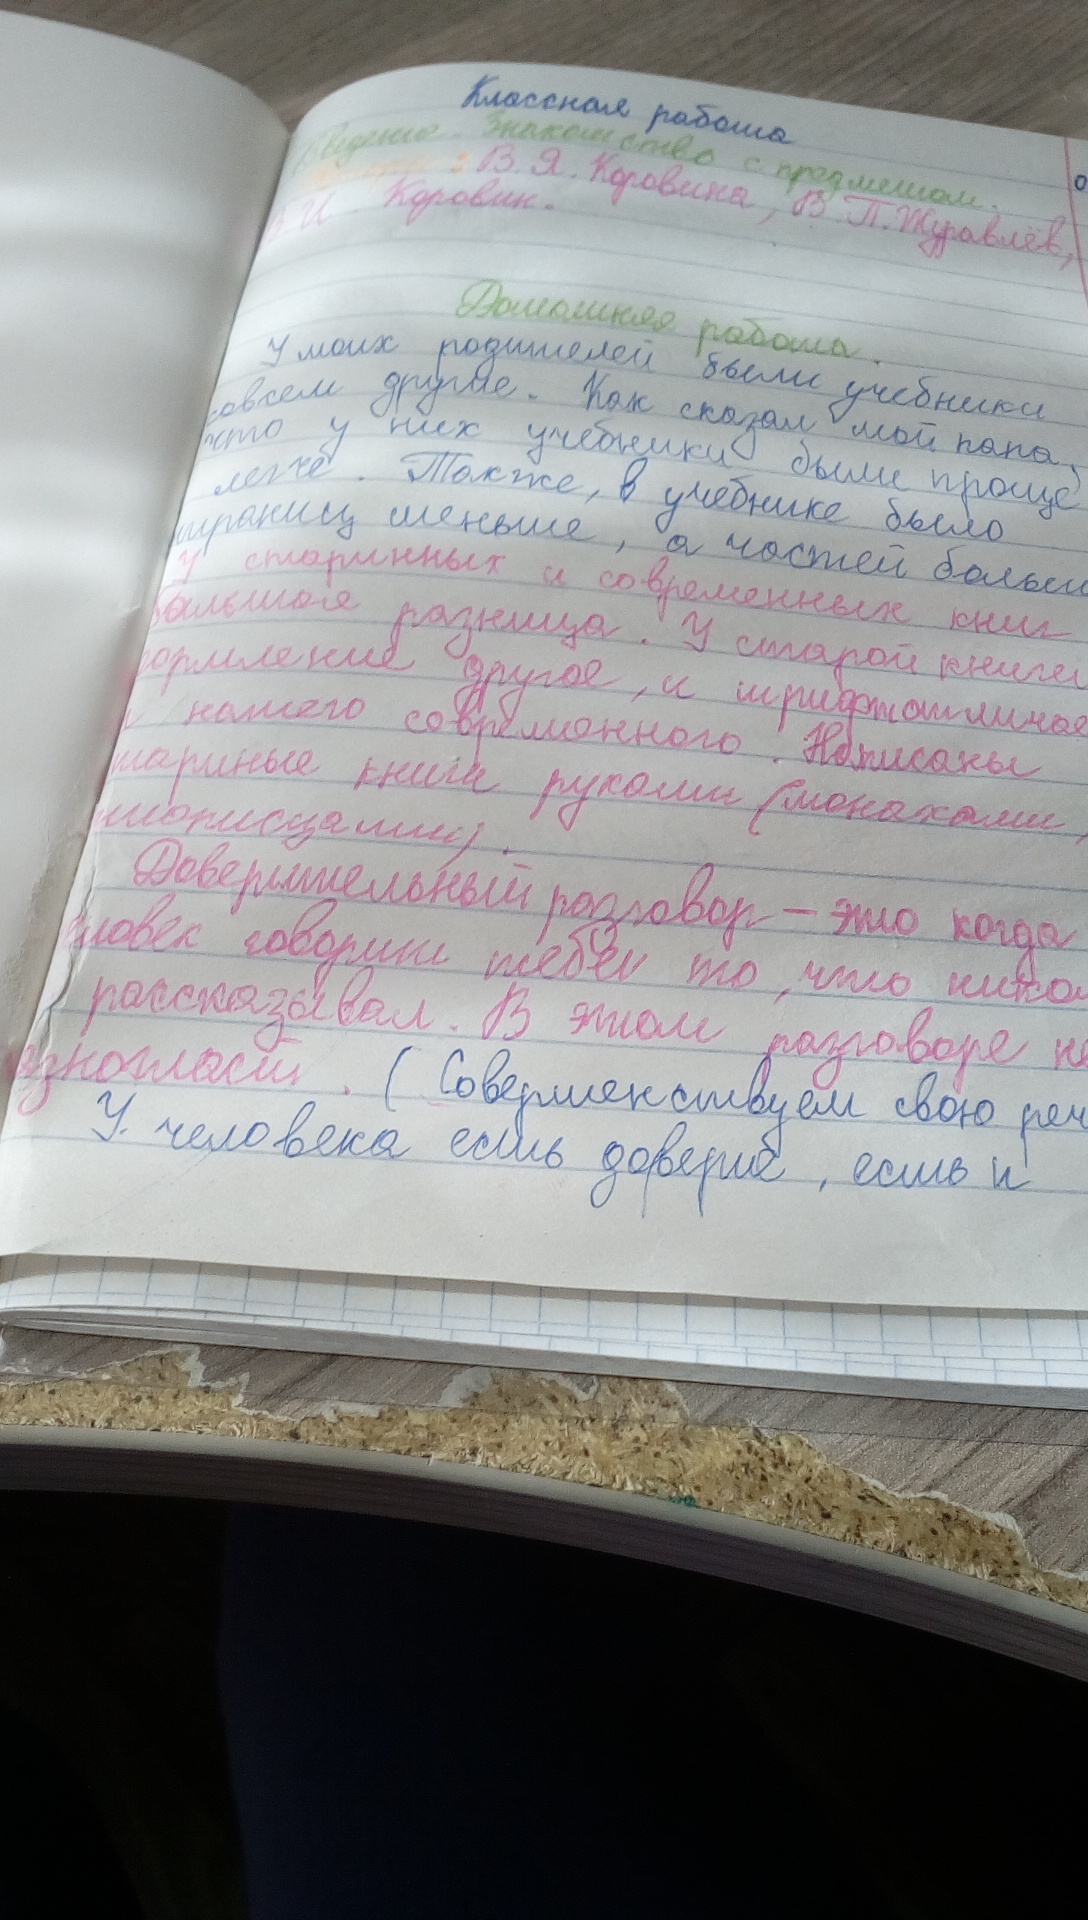 Классная работа
Знакомство с предметом.
В. Я. Коровина, В. П. Журавлёв,
В. И. Коровин.
Домашняя работа.
У моих родителей были учебники
совсем другие. Как сказал мой папа,
что у них учебники были проще
легче. Также, в учебнике было
страниц меньше, а частей больш
У старинных и современных книг
большая разница. У старой книги
ормление другое, и шрифт отличае
нашего современного. Написаны
тариные книги руками (монахами,
етописцами).
Доверительный разговор – это когда
еловек говорит тебе то, что нико
рассказывал. В этом разговоре не
азногласий. (Совершенствуем свою реч
У человека есть доверие, есть и